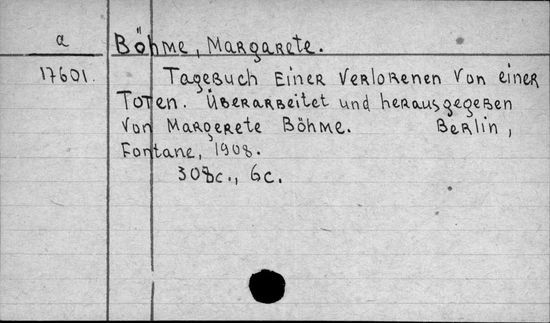 a Böhme, Margarete.
17601. Tagebuch einer Verlorenen von einer
Toten. Überarbeitet und herausgegeben
von Margerete Böhme. Berlin,
Fontane, 1908.
308c., 6c.